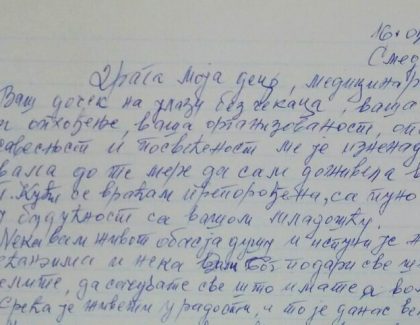 16.0
Смед
Драга моја децо, медицинар
Ваш дочек на улазу без чекаца, ваша
опхођење, ваша организованост, оп
савесност и посвећеност ме је изненад
вама до те мере да сам доживела
Кући се враћам препорођена, са пуно
у будућност са вашом младошћу.
Нека вам живот обасја душу и испуни је
и нека Вам Бог подари све
желите, да сачувате све што имате а вол
Срећа је живети у радости, а то је данас ве